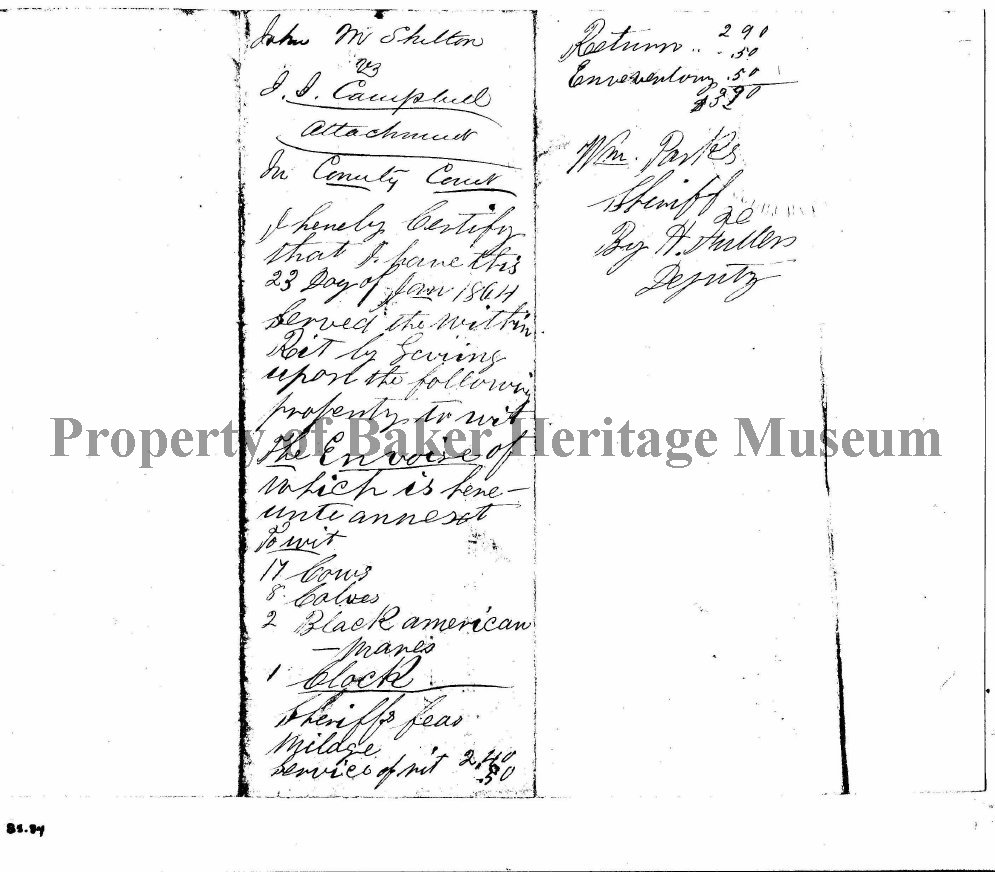 John M Shelton
vs
J. J. Campbell
Attachment
In Conuty Court
I hereby Certify
that I have this
23 Day of Jan 1864
Served the within
Rit by Leviing
upon the following
property to wit
The Envoise of
which is here-
unto annext
To wit
17 Cows
8 Calves
2 Black american
-mares
1 Clock
Sheriffs feas
Milage 2,40
Service of rit .50
2 90
Return .. .50
Enventory .50
Wm. Parks
Sheriff
By H. Fuller
Deputy
Property of Baker Heritage Museum